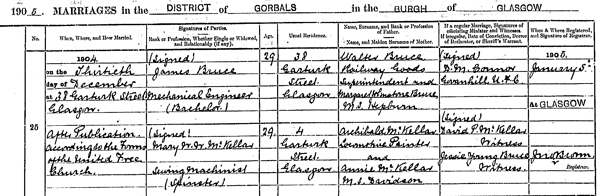 1905. MARRIAGES in the DISTRICT of GORBALS in the BURGH of GLASGOW
When, Where, and How Married.
Signatures of Parties.
Rank or Profession, Whether Single or Widowed, and Relationship (if any).
Age.
Usual Residence.
Name, Surname, and Rank or Profession of Father.
Name, and Maiden Surname of Mother.
If a regular Marriage, Signatures of officiating Minister and Witnesses.
If irregular, Date of Conviction, Decree of Declarator, or Sheriff's Warrant.
When & Where Registered, and Signature of Registrar.
25
1904.
on the Thirtieth
day of December
at 38 Garturk Street
Glasgow.
After Publication
according to the Forms
of the United Free
Church.
(Signed)
James Bruce
Mechanical Engineer
(Bachelor)
29
38
Garturk
Street
Glasgow
Walter Bruce
Railway Goods
Superintendent and
Margaret Johnstone Bruce
M.S. Hepburn
(Signed)
D. M. Connor
Govanhill U.F.C.
1905.
January 5th
At GLASGOW
(Signed)
Mary McKellar
Sewing Machinist
(Spinster)
29
4
Garturk
Street
Glasgow
Archibald McKellar
Locomotive Painter
and
Annie McKellar
M.S. Davidson
(Signed)
David P. McKellar
Witness
Jessie Young Bruce
Witness.
Jno Brown
Registrar.